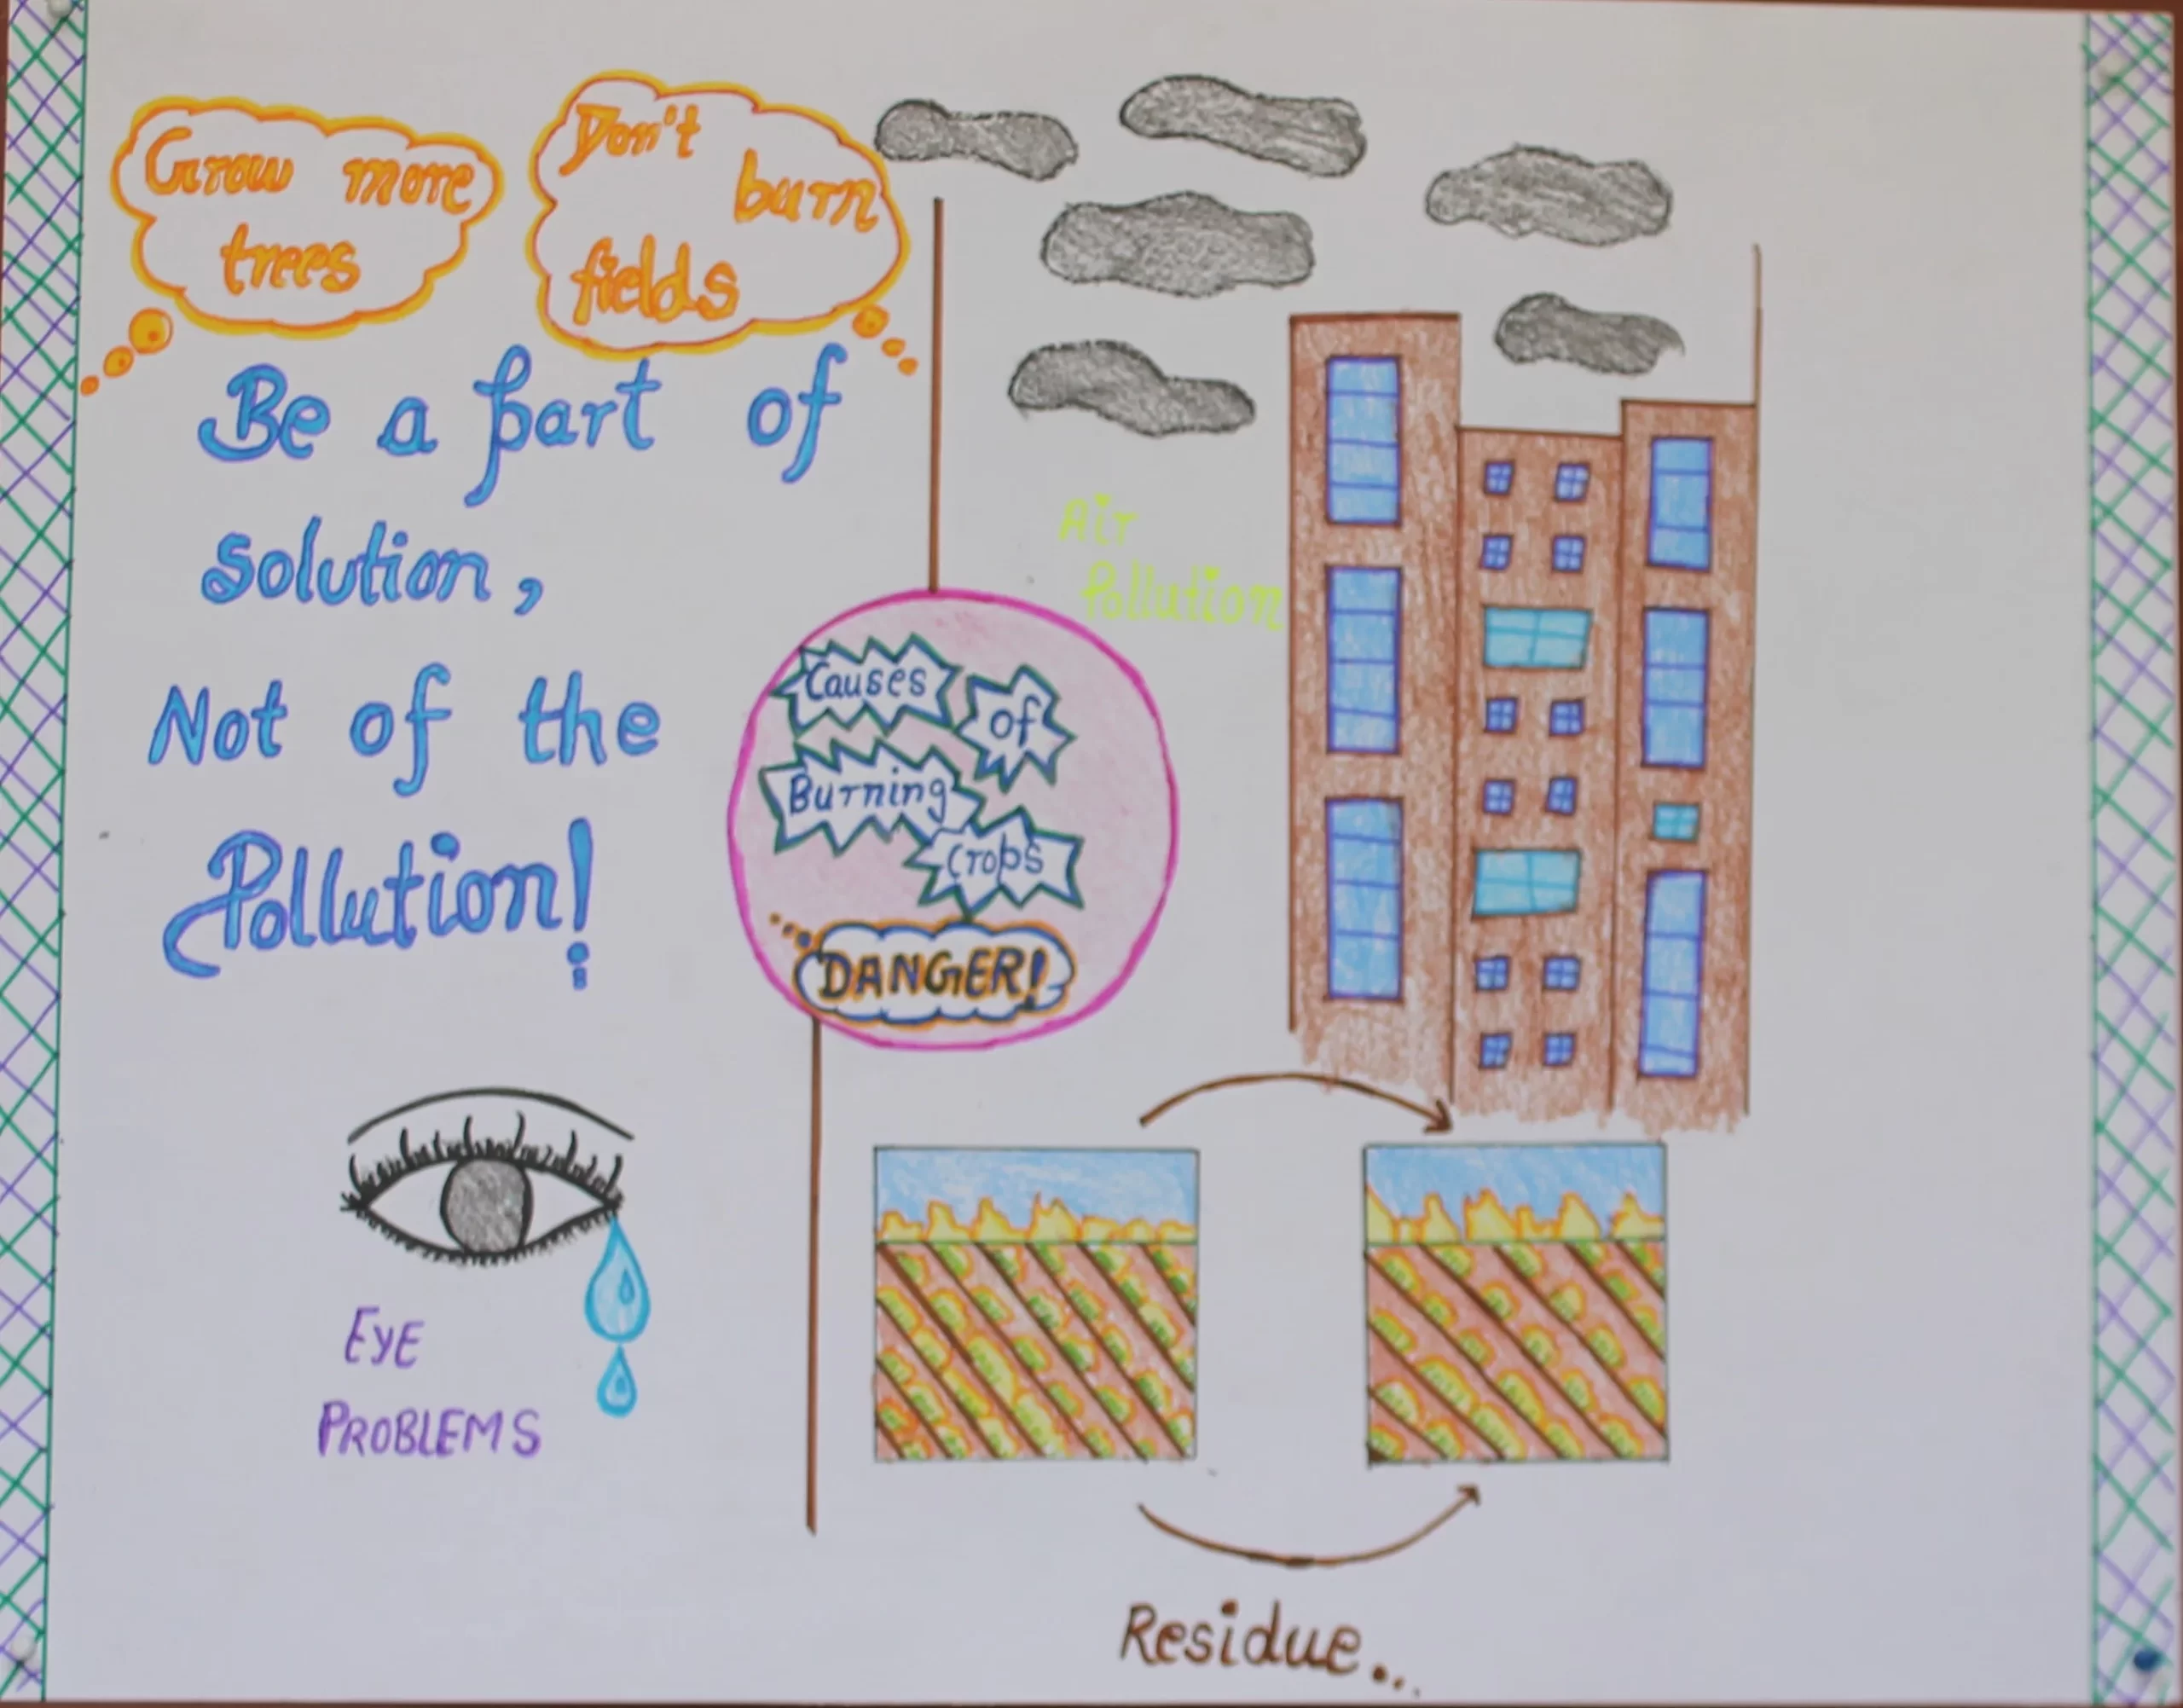 Grow more
trees
Don't
burn
fields
Be a part of
solution,
Not of the
Pollution!
Air
Pollution
Causes
of
Burning
Crops
DANGER!
EYE
PROBLEMS
Residue...